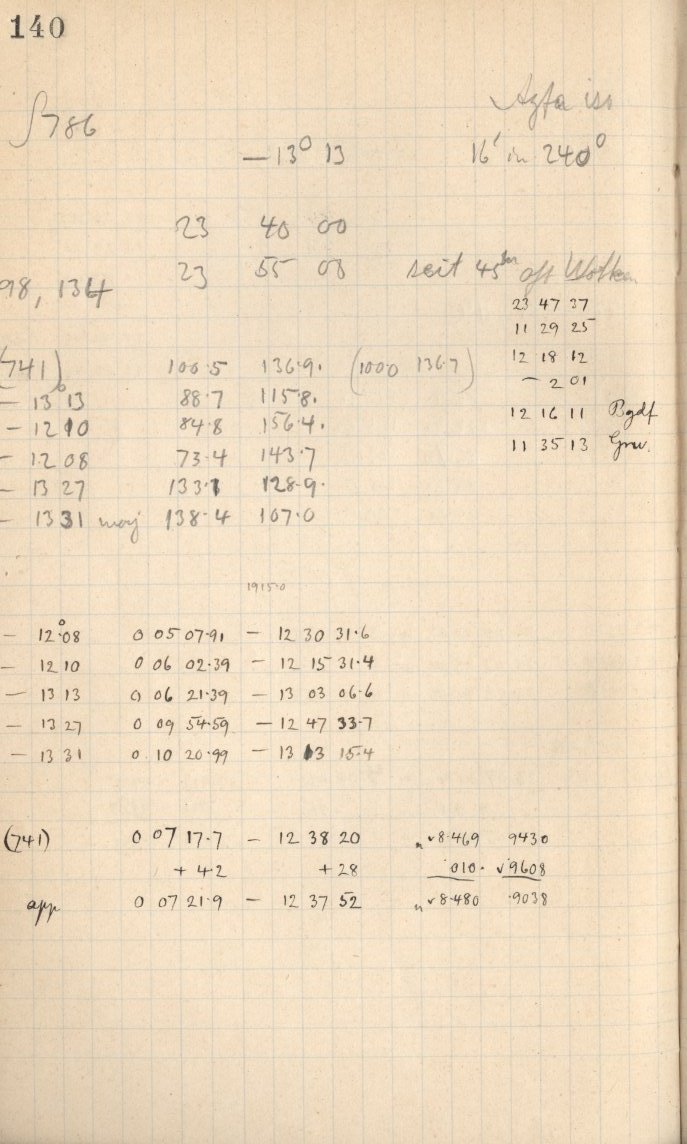 140
Agfa iso
786
— 13° 13 16' in 240°
23 40 00
23 55 00 seit 45 Wolken
98, 134
23 47 37
11 29 25
12 18 12
— 2 01
12 16 11 Bgdf
11 35 13 Grw.
(741) 100.5 136.9. (100.0 136.7)
— 13° 13 88.7 115.8.
— 12 10 84.8 156.4.
— 12 08 73.4 143.7
— 13 27 133.1 128.9.
— 13 31 138.4 107.0
1915.0
— 12° 08 0 05 07.91 — 12 30 31.6
— 12 10 0 06 02.39 — 12 15 31.4
— 13 13 0 06 21.39 — 13 03 06.6
— 13 27 0 09 54.59 — 12 47 33.7
— 13 31 0 10 20.99 — 13 13 15.4
(741) 0 07 17.7 — 12 38 20 n √8.469 9430
+ 4.2 + 28 010. √9608
app 0 07 21.9 — 12 37 52 n √8.480 .9038